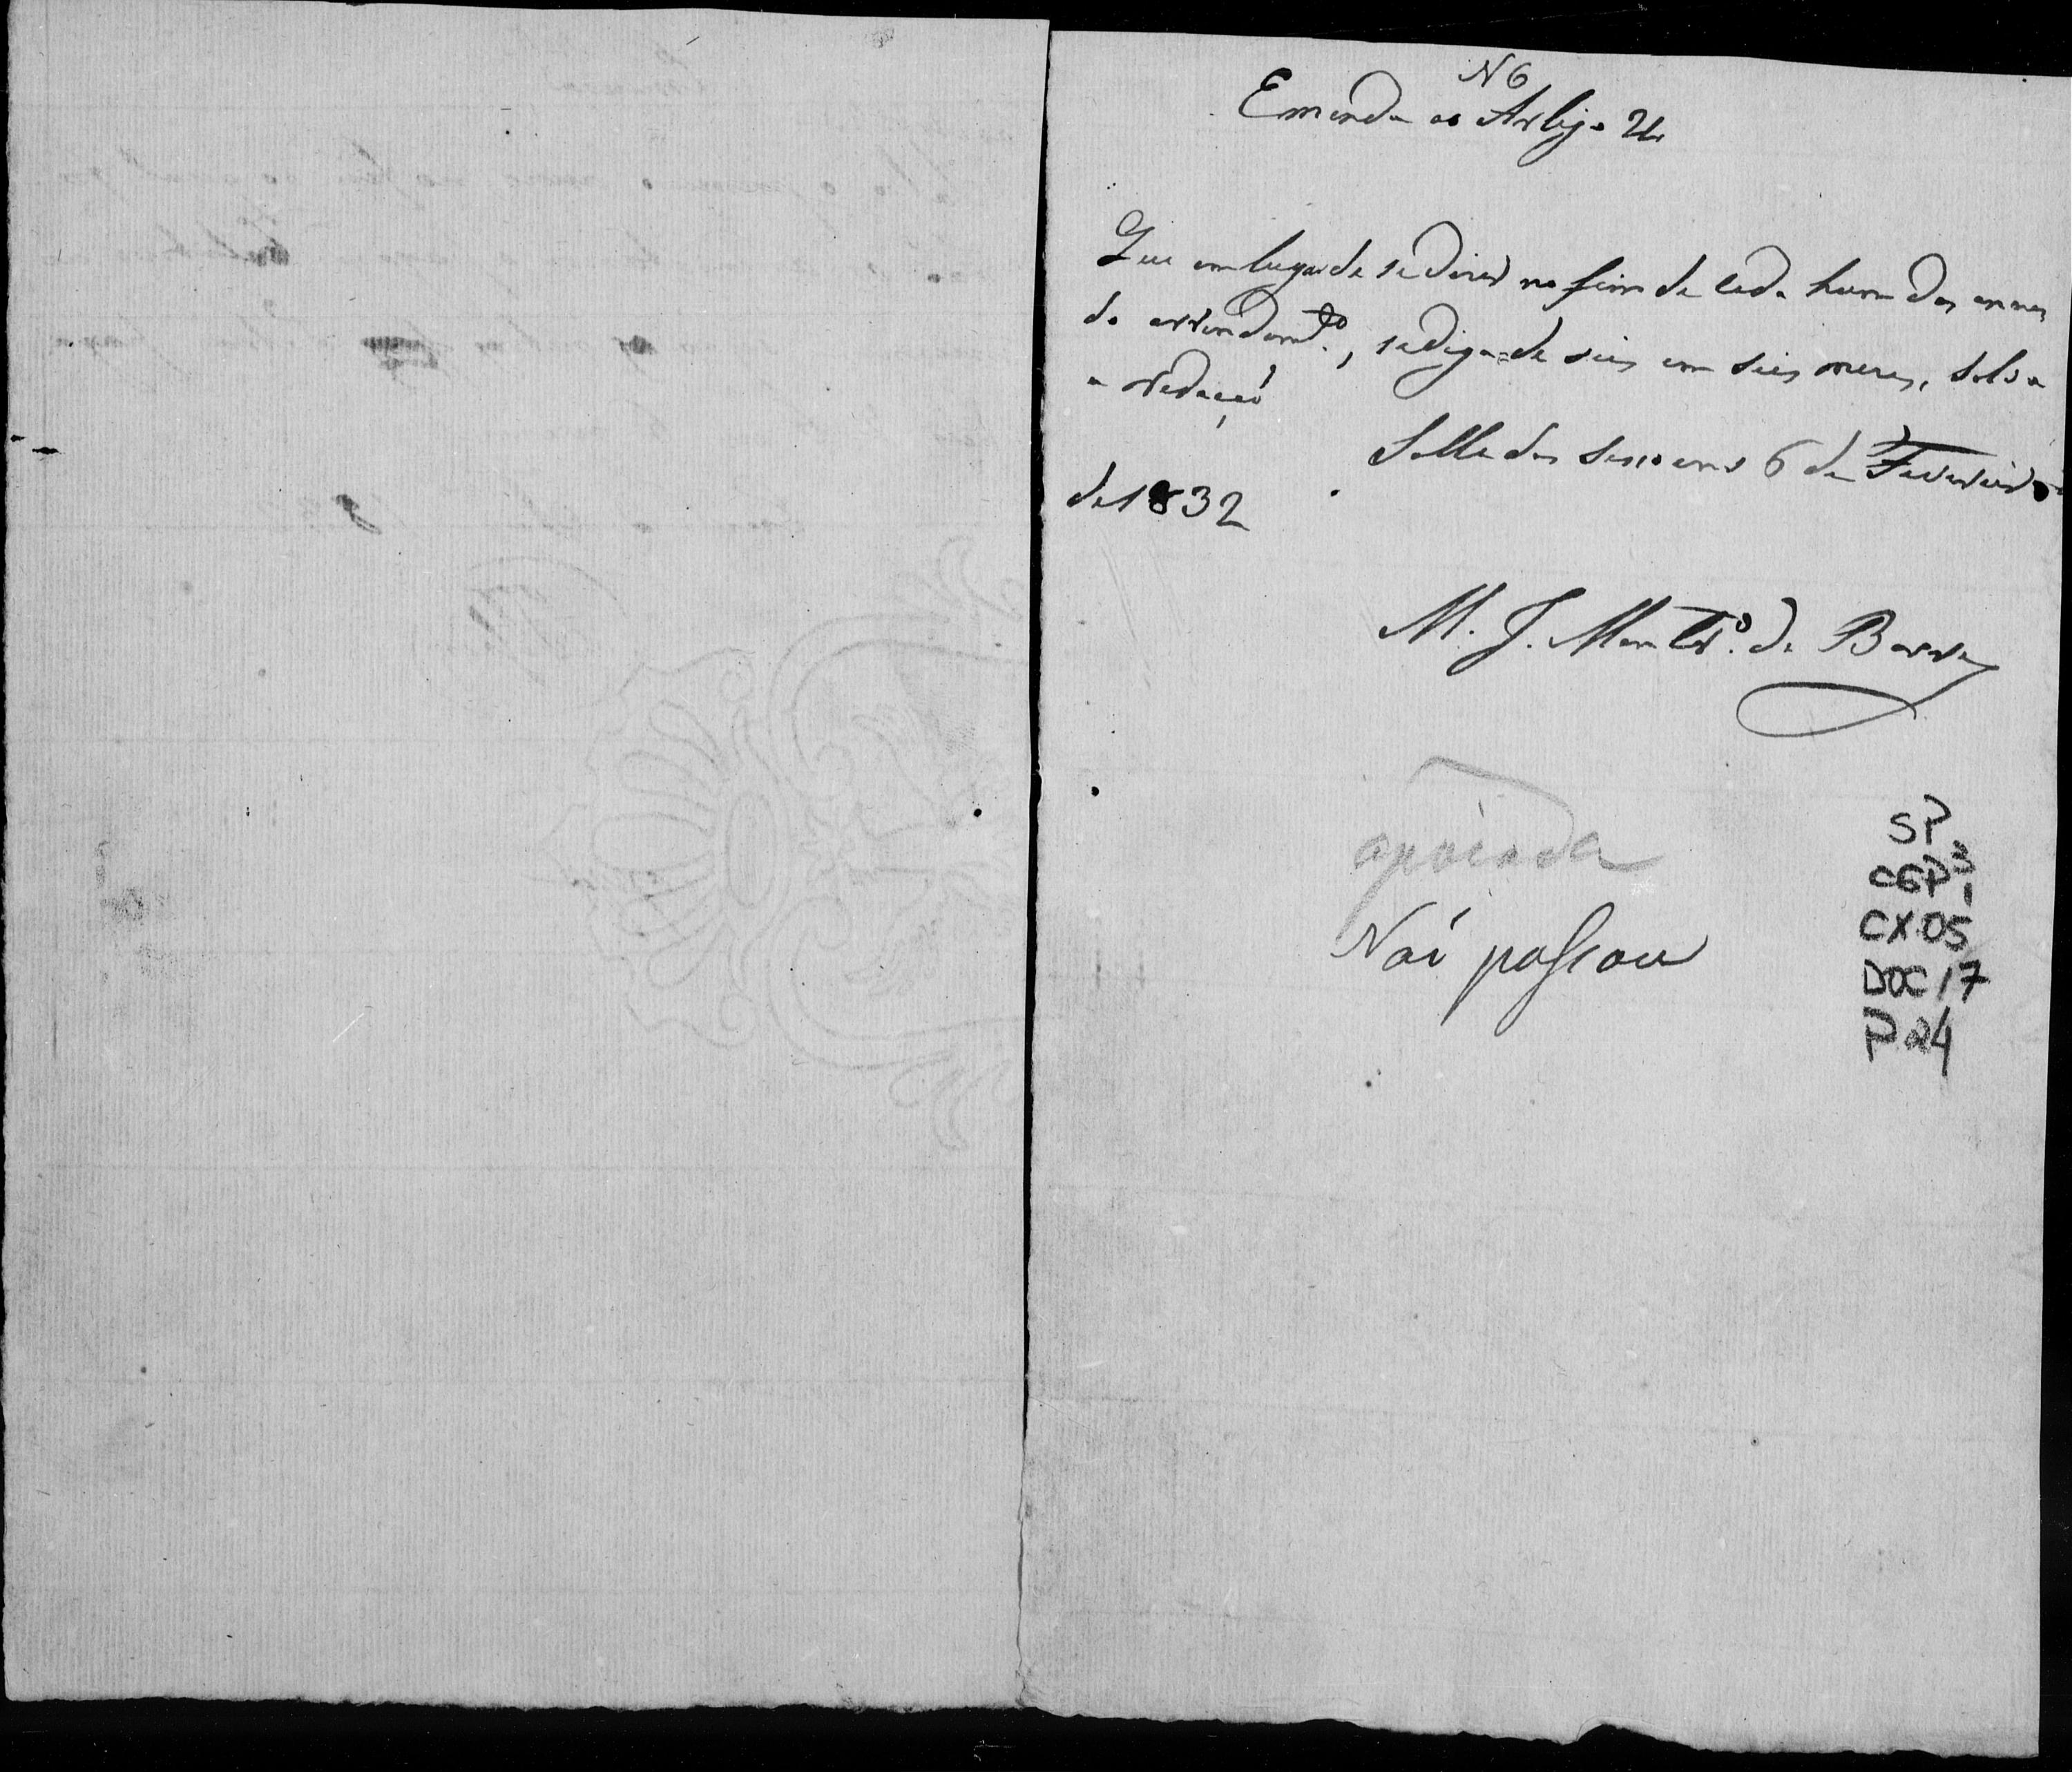 N 6
Emenda ao Artigo 2
Que em lugar de se dizer no fim de cada hum dos annos
do arrendamto., se diga = de seis em seis meses, salva
a redacçaõ
Salla das Sessoens 6 de Fevereiro
de 1832
M. J. Montro. de Barros
apoiada
Naõ passou
SP
CGP 3.1
CX.05
DOC 17
P 24